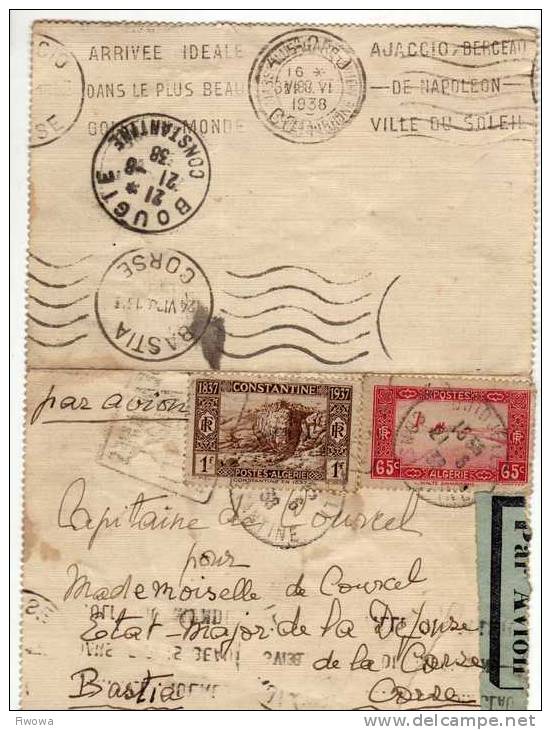 ARRIVEE IDEALE
DANS LE PLUS BEAU
MONDE
16 *
1938
AJACCIO, BERCEAU
DE NAPOLEON
VILLE DU SOLEIL
BOUGIE
CONSTANTINE
21 *
21 -6
38
BASTIA
CORSE
par avion
1837 CONSTANTINE 1937
RF RF
1F POSTES-ALGERIE 1F
CONSTANTINE EN 1837
POSTES
RF RF
65c ALGERIE 65c
Par Avion
Capitaine de Courcel
pour
Mademoiselle de Courcel
Etat-Major de la Défense
de la Corse
Bastia Corse
Rwowa
delcampe.net